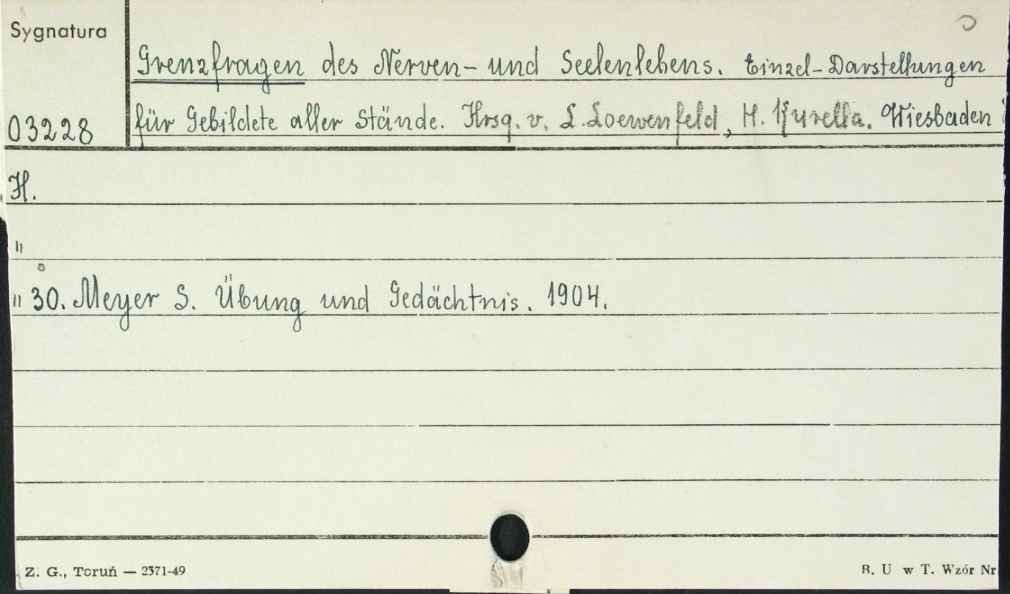 Sygnatura
Grenzfragen des Nerven- und Seelenlebens. Einzel-Darstellungen
03228 für Gebildete aller Stände. Hrsg. v. L. Loewenfeld, H. Kurella. Wiesbaden
H.
"
" 30. Meyer S. Übung und Gedächtnis. 1904.
Z. G., Toruń — 2371-49
B. U w T. Wzór Nr